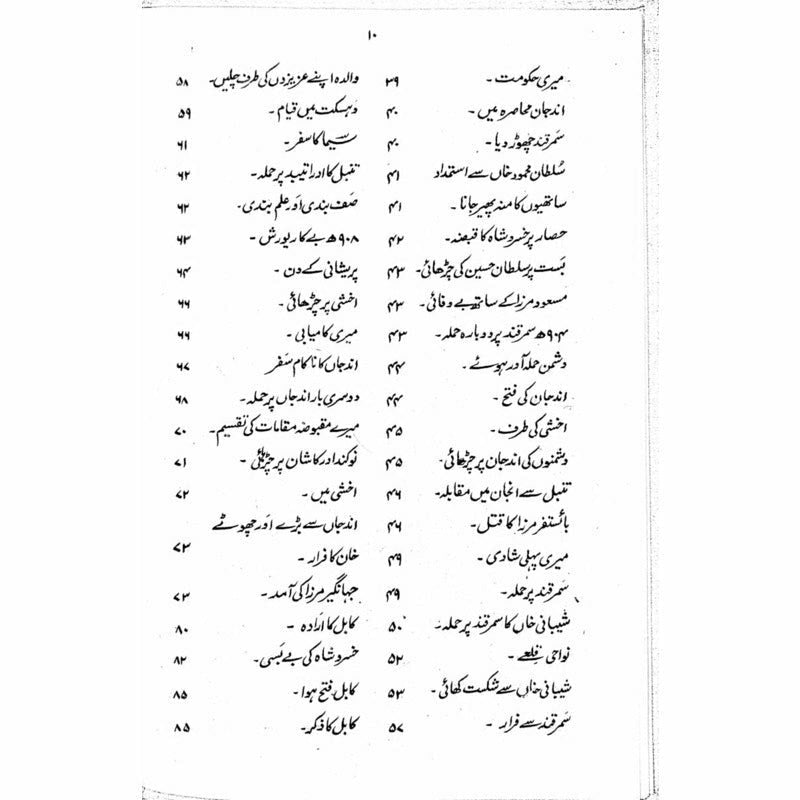 ۱۰
میری حکومت۔ ۳۹
اندجان محاصرہ میں۔ ۴۰
سمرقند چھوڑ دیا۔ ۴۰
سُلطان محمود خاں سے استمداد ۴۱
ساتھیوں کا منہ پھیر جانا۔ ۴۱
حصار پر خسرو شاہ کا قبضہ۔ ۴۲
بَست پر سلطان حسین کی چڑھائی۔ ۴۳
مسعود مرزا کے ساتھ بے وفائی۔ ۴۳
۹۰۴ھ سمرقند پر دوبارہ حملہ۔ ۴۳
دشمن حملہ آور ہوئے۔ ۴۴
اندجان کی فتح۔ ۴۴
اخشی کی طرف۔ ۴۵
دشمنوں کی اندجان پر چڑھائی۔ ۴۵
تنبل سے انجان میں مقابلہ۔ ۴۶
بائستغر مرزا کا قتل۔ ۴۶
میری پہلی شادی۔ ۴۹
سمرقند پر حملہ۔ ۴۹
شیبانی خاں کا سمرقند پر حملہ۔ ۵۰
نواحی قلعے۔ ۵۲
شیبانی خاں سے شکست کھائی۔ ۵۳
سمرقند سے فرار۔ ۵۷
والدہ اپنے عزیزوں کی طرف چلیں۔ ۵۸
دہسکت میں قیام۔ ۵۹
سیما کا سفر۔ ۶۱
تنبل کا اوراتیبہ پر حملہ۔ ۶۲
صَف بندی اور علم بندی۔ ۶۲
۹۰۸ھ بے کار یورش۔ ۶۳
پریشانی کے دن۔ ۶۴
اخشی پر چڑھائی۔ ۶۶
میری کامیابی۔ ۶۶
اندجاں کا ناکام سَفر ۶۷
دوسری بار اندجاں پر حملہ۔ ۶۸
میرے مقبوضہ مقامات کی تقسیم۔ ۷۰
نوکند اور کاشان پر چڑھائی۔ ۷۱
اخشی میں۔ ۷۲
اندجاں سے بڑے اور چھوٹے
خان کا فرار۔ ۷۳
جہانگیر مرزا کی آمد۔ ۷۳
کابل کا اَرادہ۔ ۸۰
خسرو شاہ کی بے بَسی۔ ۸۲
کابل فتح ہوا۔ ۸۵
کابل کا ذکر۔ ۸۵